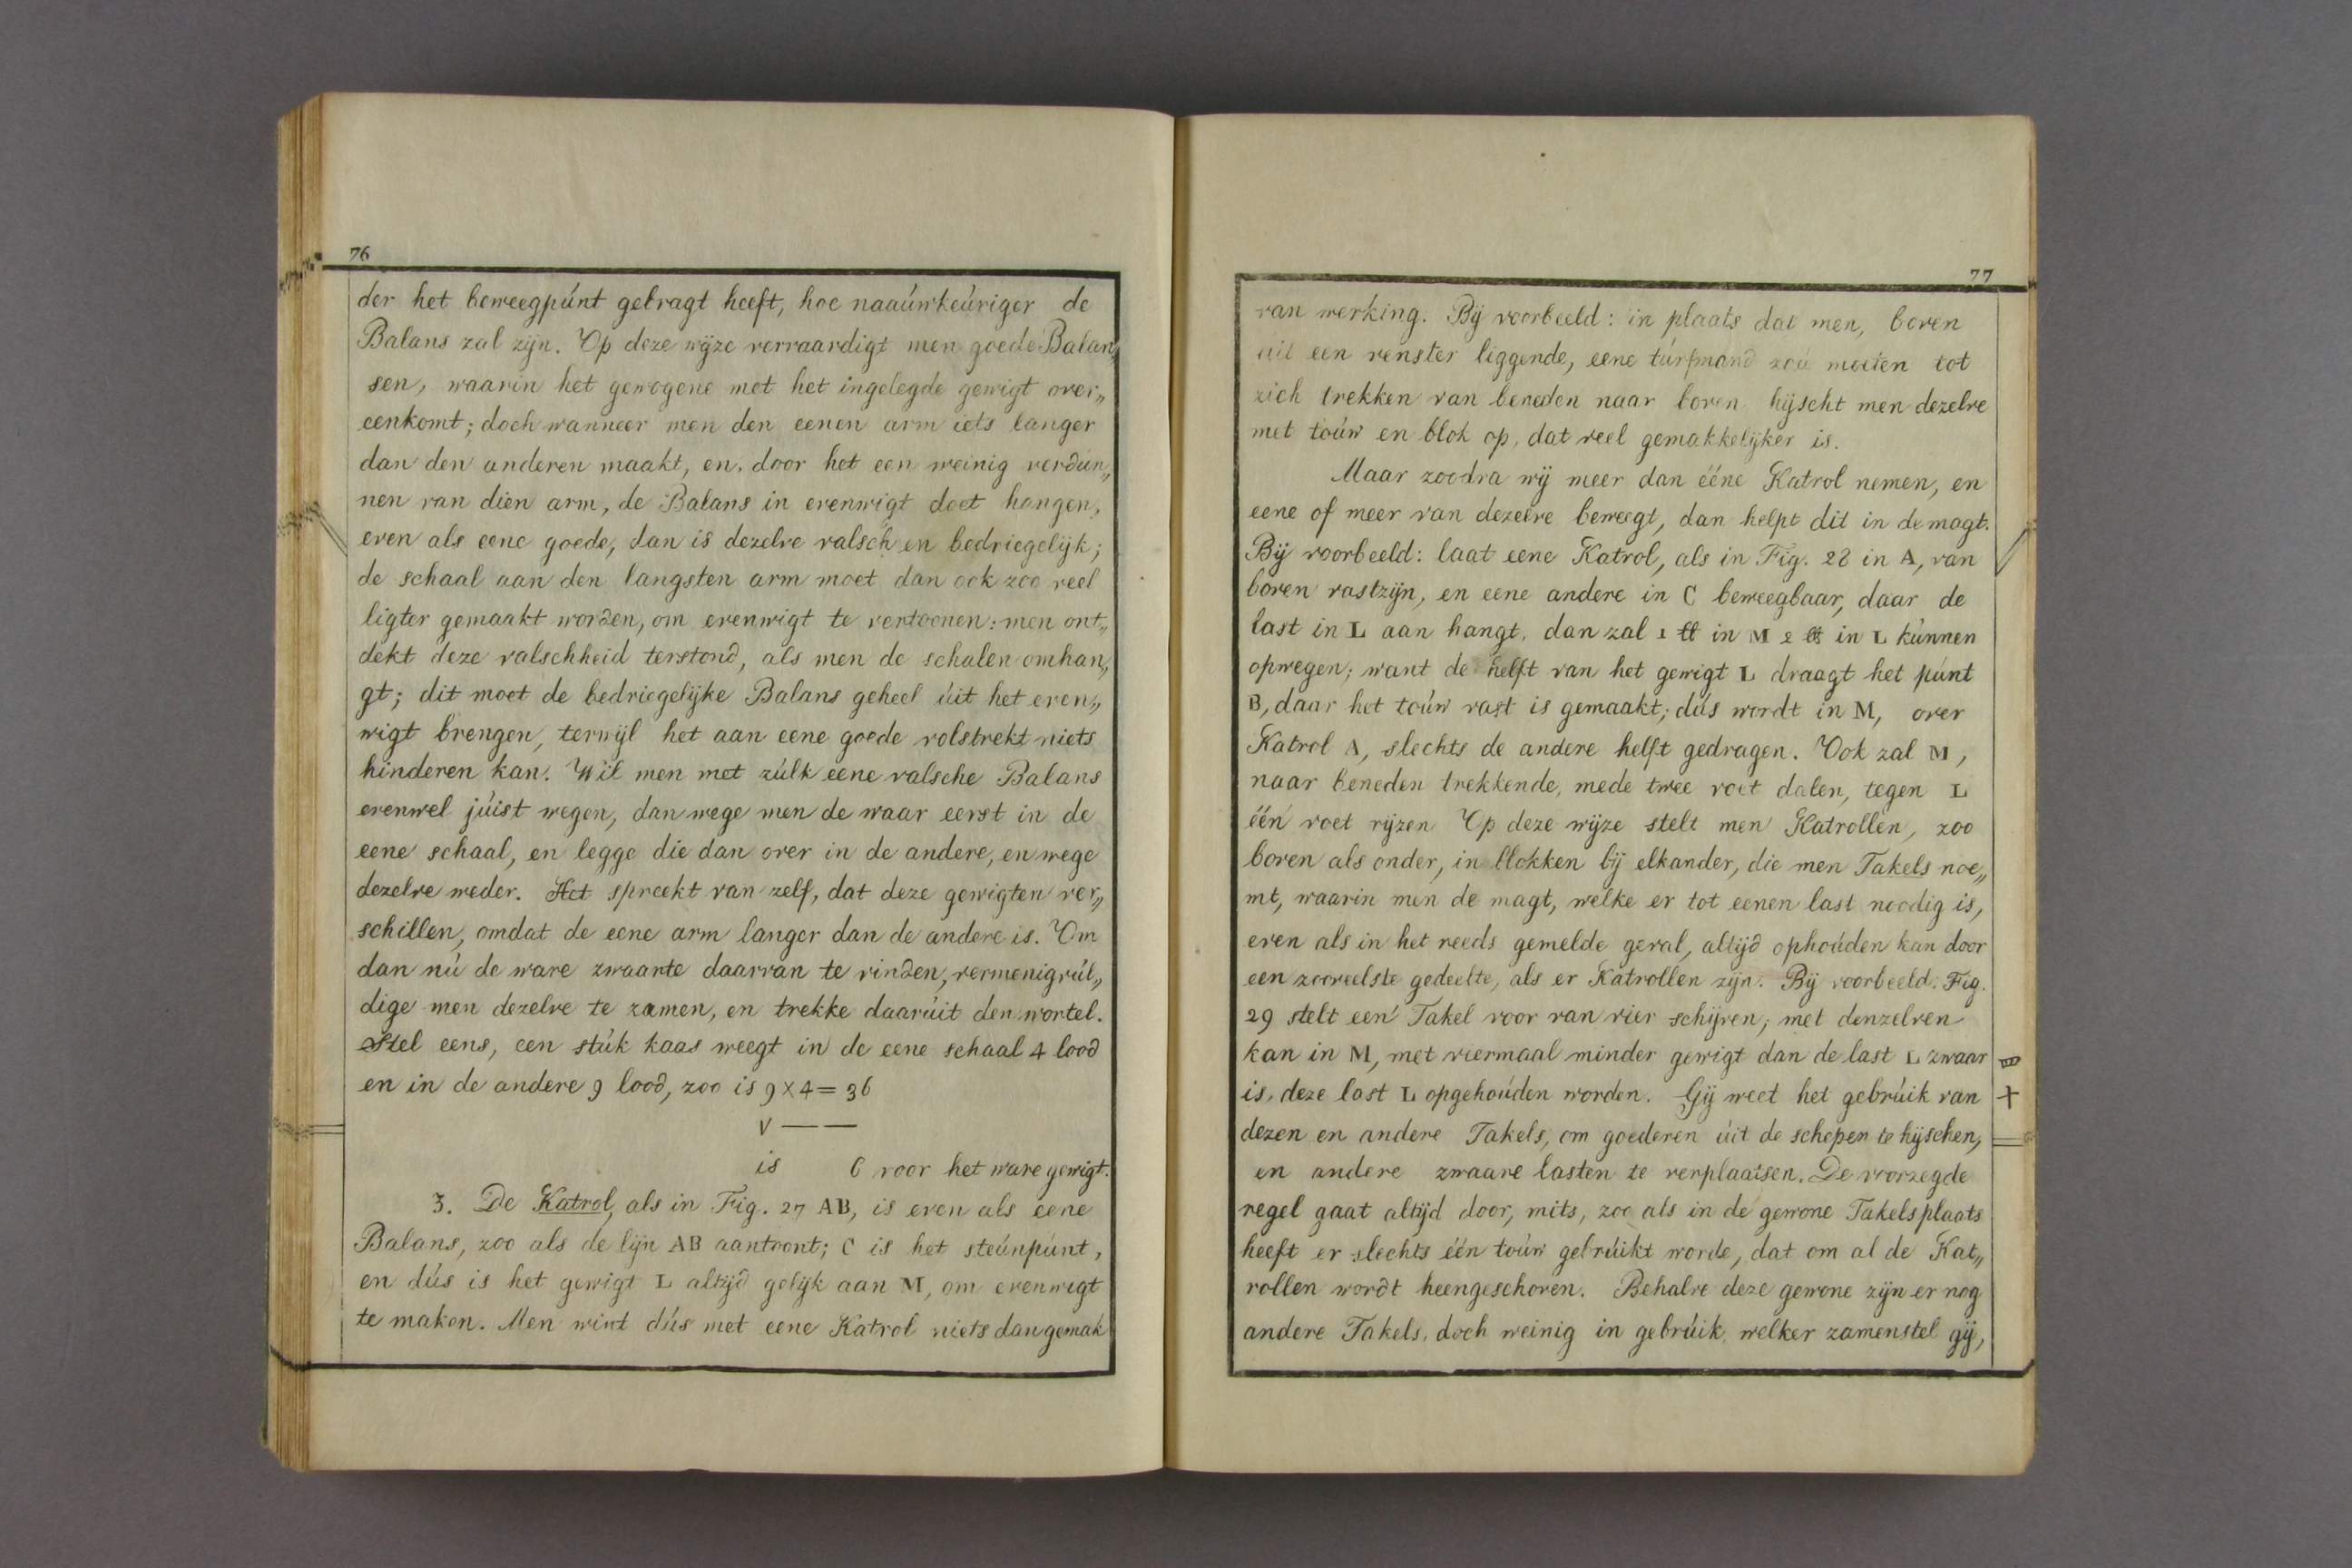 76
der het beweegpúnt gebragt heeft, hoe naaúwkeúriger de
Balans zal zijn. Op deze wijze vervaardigt men goede Balan„
sen, waarin het gewogene met het ingelegde gewigt over„
eenkomt; doch wanneer men den eenen arm iets langer
dan den anderen maakt, en, door het een weinig verdún„
nen van dien arm, de Balans in evenwigt doet hangen,
even als eene goede, dan is dezelve valsch en bedriegelijk;
de schaal aan den langsten arm moet dan ook zoo veel
ligter gemaakt worden, om evenwigt te vertoonen: men ont„
dekt deze valschheid terstond, als men de schalen omhan„
gt; dit moet de bedriegelijke Balans geheel úit het even„
wigt brengen, terwijl het aan eene goede volstrekt niets
hinderen kan. Wil men met zúlk eene valsche Balans
evenwel júist wegen, dan wege men de waar eerst in de
eene schaal, en legge die dan over in de andere, en wege
dezelve weder. Het spreekt van zelf, dat deze gewigten ver„
schillen, omdat de eene arm langer dan de andere is. Om
dan nú de ware zwaarte daarvan te vinden, vermenigvúl„
dige men dezelve te zamen, en trekke daarúit den wortel.
Stel eens, een stúk kaas weegt in de eene schaal 4 lood
en in de andere 9 lood, zoo is 9 × 4 = 36
V — —
is 6 voor het ware gewigt.
3. De Katrol, als in Fig. 27 AB, is even als eene
Balans, zoo als de lijn AB aantoont; C is het steúnpúnt,
en dús is het gewigt L altijd gelijk aan M, om evenwigt
te maken. Men wint dús met eene Katrol niets dan gemak
77
van werking. Bij voorbeeld: in plaats dat men, boven
uit een venster liggende, eene túrfmand zoú moeten tot
zich trekken van beneden naar boven hijscht men dezelve
met toúw en blok op, dat veel gemakkelijker is.
Maar zoodra wij meer dan ééne Katrol nemen, en
eene of meer van dezelve beweegt, dan helpt dit in de magt.
Bij voorbeeld: laat eene Katrol, als in Fig. 28 in A, van
boven vastzijn, en eene andere in C beweegbaar, daar de
last in L aan hangt, dan zal 1 ℔ in M 2 ℔ in L kúnnen
opwegen; want de helft van het gewigt L draagt het púnt
B, daar het toúw vast is gemaakt; dús wordt in M, over
Katrol A, slechts de andere helft gedragen. Ook zal M,
naar beneden trekkende, mede twee voet dalen, tegen L
één voet rijzen Op deze wijze stelt men Katrollen, zoo
boven als onder, in blokken bij elkander, die men Takels noe„
mt, waarin men de magt, welke er tot eenen last noodig is,
even als in het reeds gemelde geval, altijd ophoúden kan door
een zooveelste gedeelte, als er Katrollen zijn. Bij voorbeeld. Fig.
29 stelt een Takel voor van vier schijven; met denzelven
kan in M, met viermaal minder gewigt dan de last L zwaar
is, deze last L opgehoúden worden. Gij weet het gebrúik van
dezen en andere Takels, om goederen úit de schepen te hijschen,
en andere zwaare lasten te verplaatsen. De voorzegde
regel gaat altijd door, mits, zoo als in de gewone Takels plaats
heeft er slechts één toúw gebrúikt worde, dat om al de Kat„
rollen wordt heengeschoren. Behalve deze gewone zijn er nog
andere Takels, doch weinig in gebrúik, welker zamenstel gij,